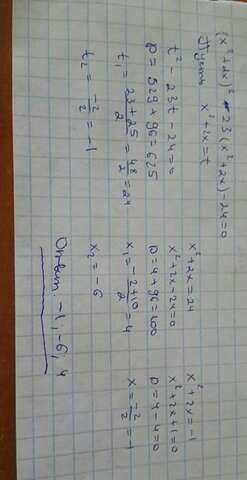 (x²+2x)² - 23(x²+2x)-24=0
Пусть x²+2x=t
t² - 23t - 24=0
D = 529 + 96 = 625
t₁ = (23+25)/2 = 48/2 = 24
t₂ = -2/2 = -1
x²+2x=24
x²+2x-24=0
D=4+96=100
x₁ = (-2+10)/2 = 4
x₂ = -6
x²+2x=-1
x²+2x+1=0
D=4-4=0
x = -2/2 = -1
Ответ: -1; -6; 4